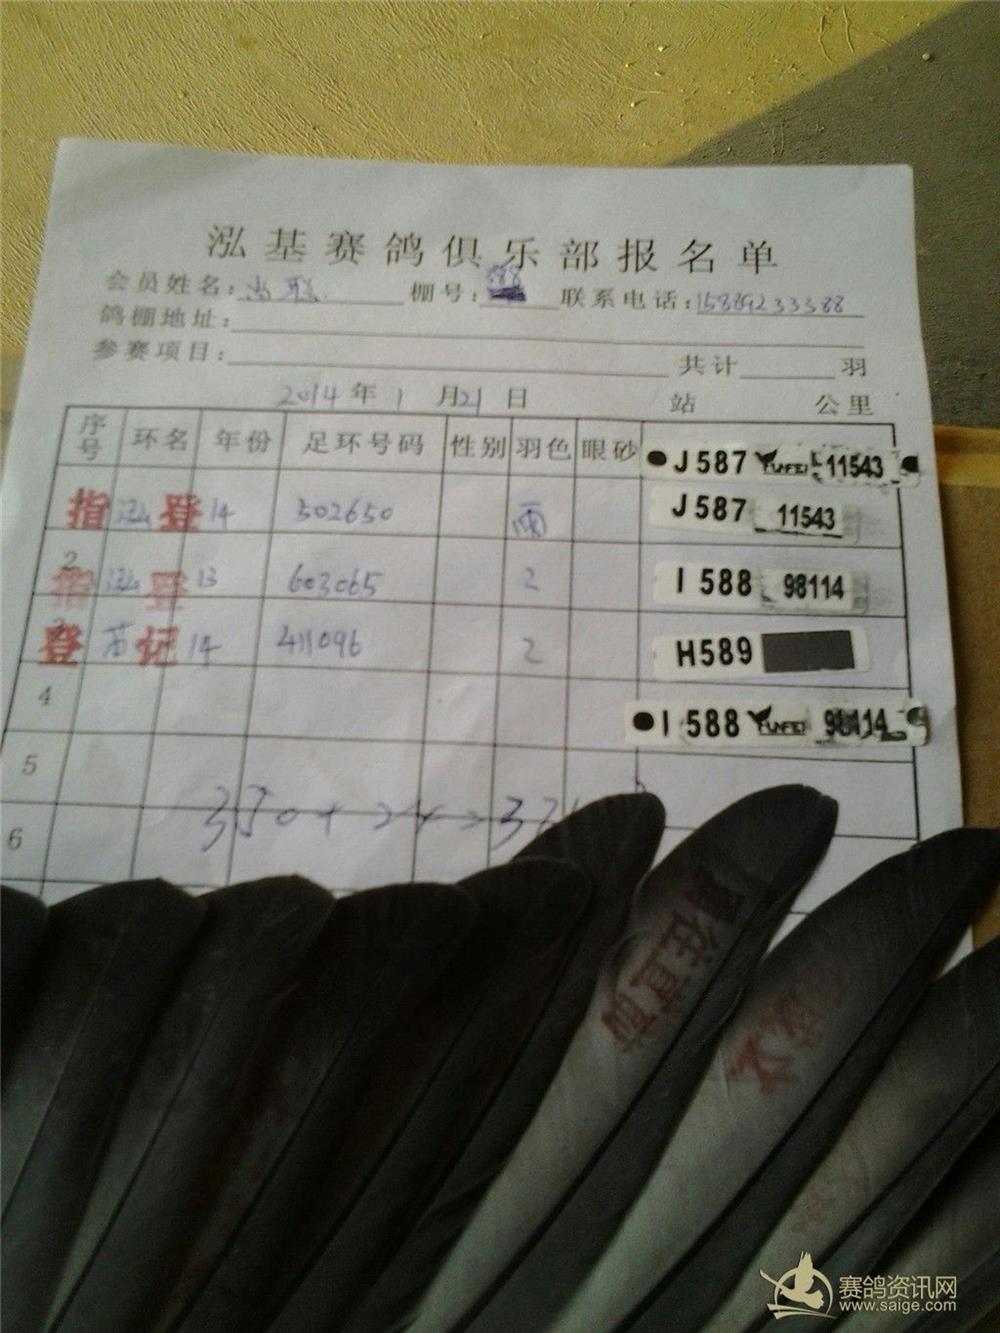 泓基赛鸽俱乐部报名单
会员姓名: 棚号: 88 联系电话:15889233388
鸽棚地址:
参赛项目: 共计 羽
2014年1月21日 站 公里
序号 环名 年份 足环号码 性别 羽色 眼砂 J587 YUNFEI 11543
指 泓 登 14 502650 雨 J587 11543
2 指 泓 登 13 603065 2 I 588 98114
登 苏 记 14 411096 2 H589
4 I 588 YUNFEI 98114
5
350+24=37
6
赛鸽资讯网
www.saige.com